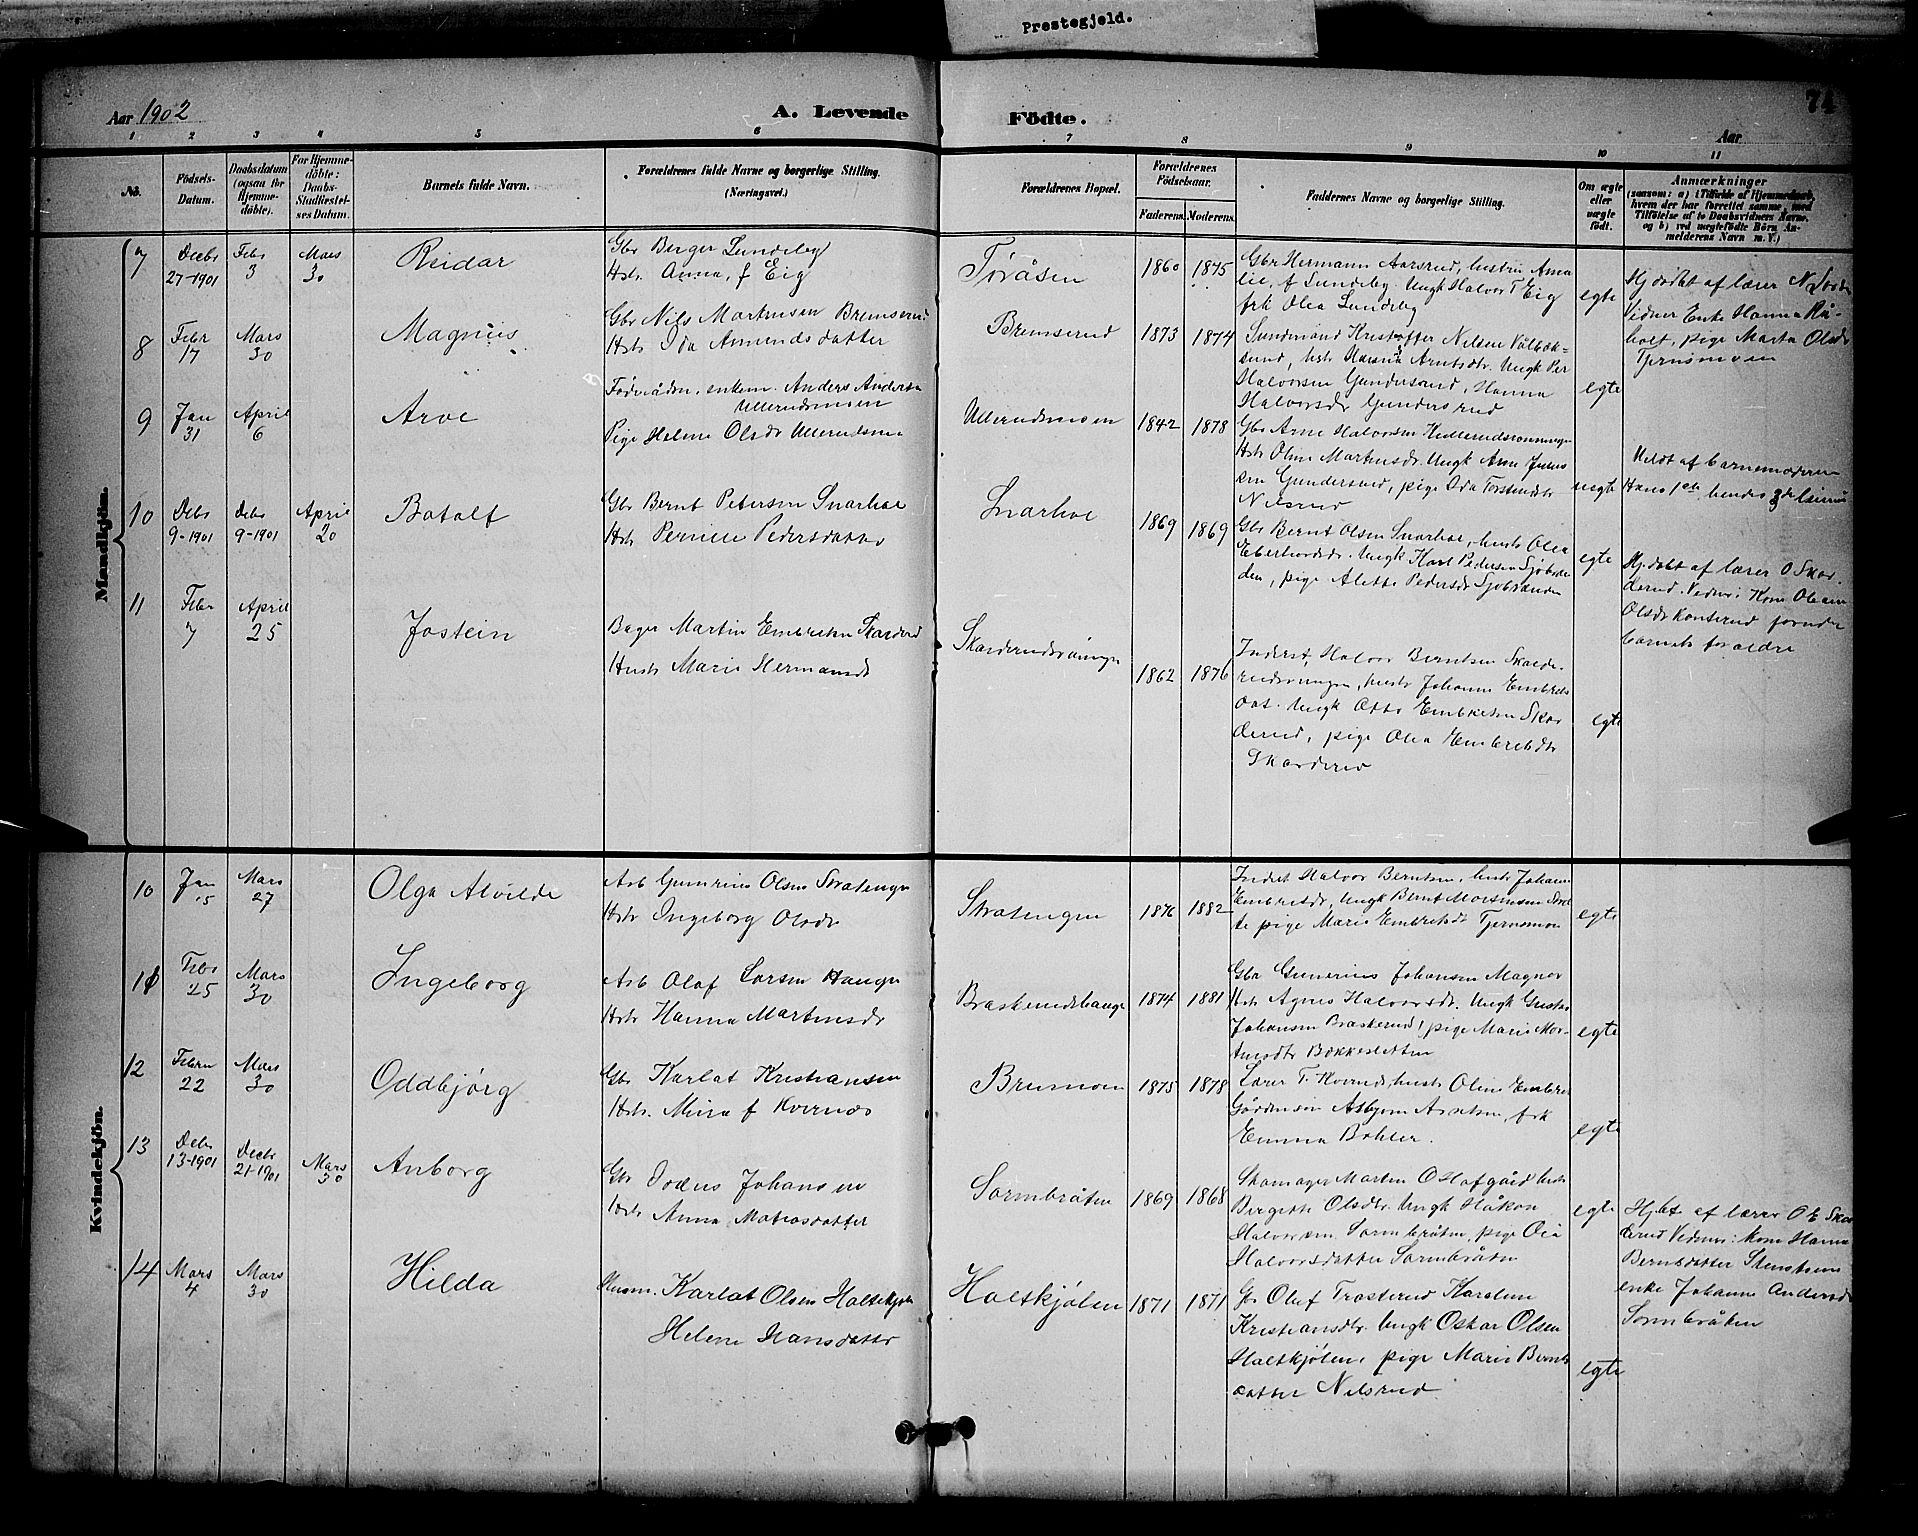 Prestegjeld.
74
Aar 1902
A. Levende Födte.
Aar
1 2 3 4 5 6 7 8 9 10 11
No.
Födsels-Datum.
Daabsdatum (ogsaa for Hjemme-döbte).
For Hjemme-döbte: Daabs-Stadfæstel-ses Datum.
Barnets fulde Navn.
Forældrenes fulde Navne og borgerlige Stilling. (Næringsvei.)
Forældrenes Bopæl.
Forældrenes Födselsaar.
Faderens. Moderens.
Faddernes Navne og borgerlige Stilling.
Om ægte eller uægte födt.
Anmærkninger
(saasom: a) i Tilfælde af Hjemmedaab, hvem der har forrettet samme, med Tilföielse af to Daabsvidners Navne, og b) ved uægtefödte Börn Anmelderens Navn m. V.)
Mandkjön.
7
Decbr 27-1901
Febr 3
Mars 30
Reidar
Gbr Berger Sundeby
Hstr. Anna, f Eig
Tøråsen
1860 1875
Gbr Hermann Aarsrud, hustru Ama
lie, f Sundeby. Ungk Halvor T Eig
frk Olea Sundeby
egte
Hj døbt af lærer N
Vidner Enke Hanna Rå-
holt, pige Marta Olsdr
Tjernsmoen
8
Febr 17
Mars 30
Magnus
Gbr Nils Martinsen Bremserud
Hstr Ida Amundsdatter
Bremserud
1873 1874
Sundmand Kristoffer Nilsen
sund, hstr Arntsdtr. Ungk Per
Halvorsen Gundersrud, Hanna
Halvorsdr Gundersrud
egte
9
Jan 31
April 6
Arve
Føderådm, enkem. Anders Andersen
Ullerudsmoen
Pige Helene Olsdr Ullerudsm
Ullerudsmoen
1842 1878
Gbr Arne Halvorsen
Hstr Oline Martinsdr. Ungk Arne Julius
sen Gundersrud, pige Ida Torstensdtr
Nilsrud
uegte
Meldt af barnemoderen
Hans 1ste hendes 3de
10
Debr 9-1901
Debr 9-1901
April 20
Botolf
Gbr Bernt Petersen Snarhol
Hstr Pernille Pedersdatter
Snarhol
1869 1869
Gbr Bernt Olsen Snarhol, hustr Olea
Ungk Karl Pedersen Sjøstran
den, pige Alette Pedersdr Sjøstranden
egte
Hj. døbt af lærer O Skar-
derud. Vidner: Kone Oleane
Olsdr foruden
barnets forældre
11
Febr 7
April 25
Jostein
Bager Martin Embretsen Skarderud
Hustr Marie Hermansdr
Skarderudsrøningn
1862 1876
Inderst Halvor Berntsen Skarde-
rudsrøningen, hustr Johanne Embrets
dat. Ungk Otto Embretsen Skar
derud, pige Olea Embretsdtr
Skarderud
egte
Kvindekjön.
10
Jan 15
Mars 27
Olga Alvilde
Arb Gunerius Olsen Stratengn
Hstr Ingeborg Olsdr
Stratengen
1876 1882
Indst Halvor Berntsen, hustr Johanne
Embretsdr, Ungk Bernt
pige Marie Embretsdtr Tjernsmoen
egte
11
Febr 25
Mars 30
Ingeborg
Arb Olaf Larsen Haugen
Hstr Hanna Martinsdr
Braskerudshauge
1874 1881
Gbr Gunerius Johansen Magnor
Hstr Agnes Halvorsdr. Ungk Gustav
Johansen Braskerud, pige Marie Mor-
tinsdtr Bekkesletten
egte
12
Febru 22
Mars 30
Oddbjørg
Gbr Karlot Kristiansen
Hstr. Mina f Kvernes
Brumoen
1875 1878
Lærer T. Kverneds, hustr Oline Embret
Asbjørn Arnesen, frk
Emma Bøhler.
egte
13
Debr 13-1901
Decbr 21-1901
Mars 30
Anborg
Gbr Johansen
Hstr Anna Matiasdatter
Sormbråten
1869 1868
Skomager Martin O Hafgård hustr
Birgette Olsdtr. Ungk Håkon
Halvorsen Sormbråten, pige Oia
Halvorsdatter Sormbråten
egte
Hj.bt af lærer O E Skar
derud Vidner: kone Hanna
Berntsdatter
enke Johanne Andersdr
Sormbråten
14
Mars 4
Mars 30
Hilda
Husm. Karlot Olsen Holtskjølen
Helene Hansdatter
Holtskjølen
1871 1871
Gbr Oluf Trosterud Karoline
Kristiansdtr. Ungk Oskar Olsen
Holtskjølen, pige Marie Bernts
datter Nilsrud
egte